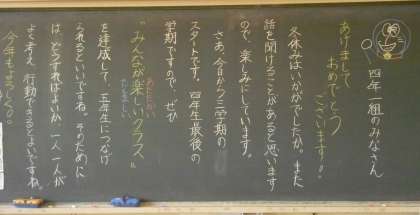 四年一組のみなさん
あけまして
おめでとう
ございます。
冬休みはいかがでしたか。また
話を聞けることがあると思います
ので、楽しみにしています。
さあ、今日から三学期の
スタートです。四年生最後の
学期ですので、ぜひ
"みんなが楽しいクラス"
を達成して、五年生につなげ
られるといいですね。そのために
は、どうすればよいか、一人一人が
よく考え、行動できるとよいですね。
今年もよろしく。